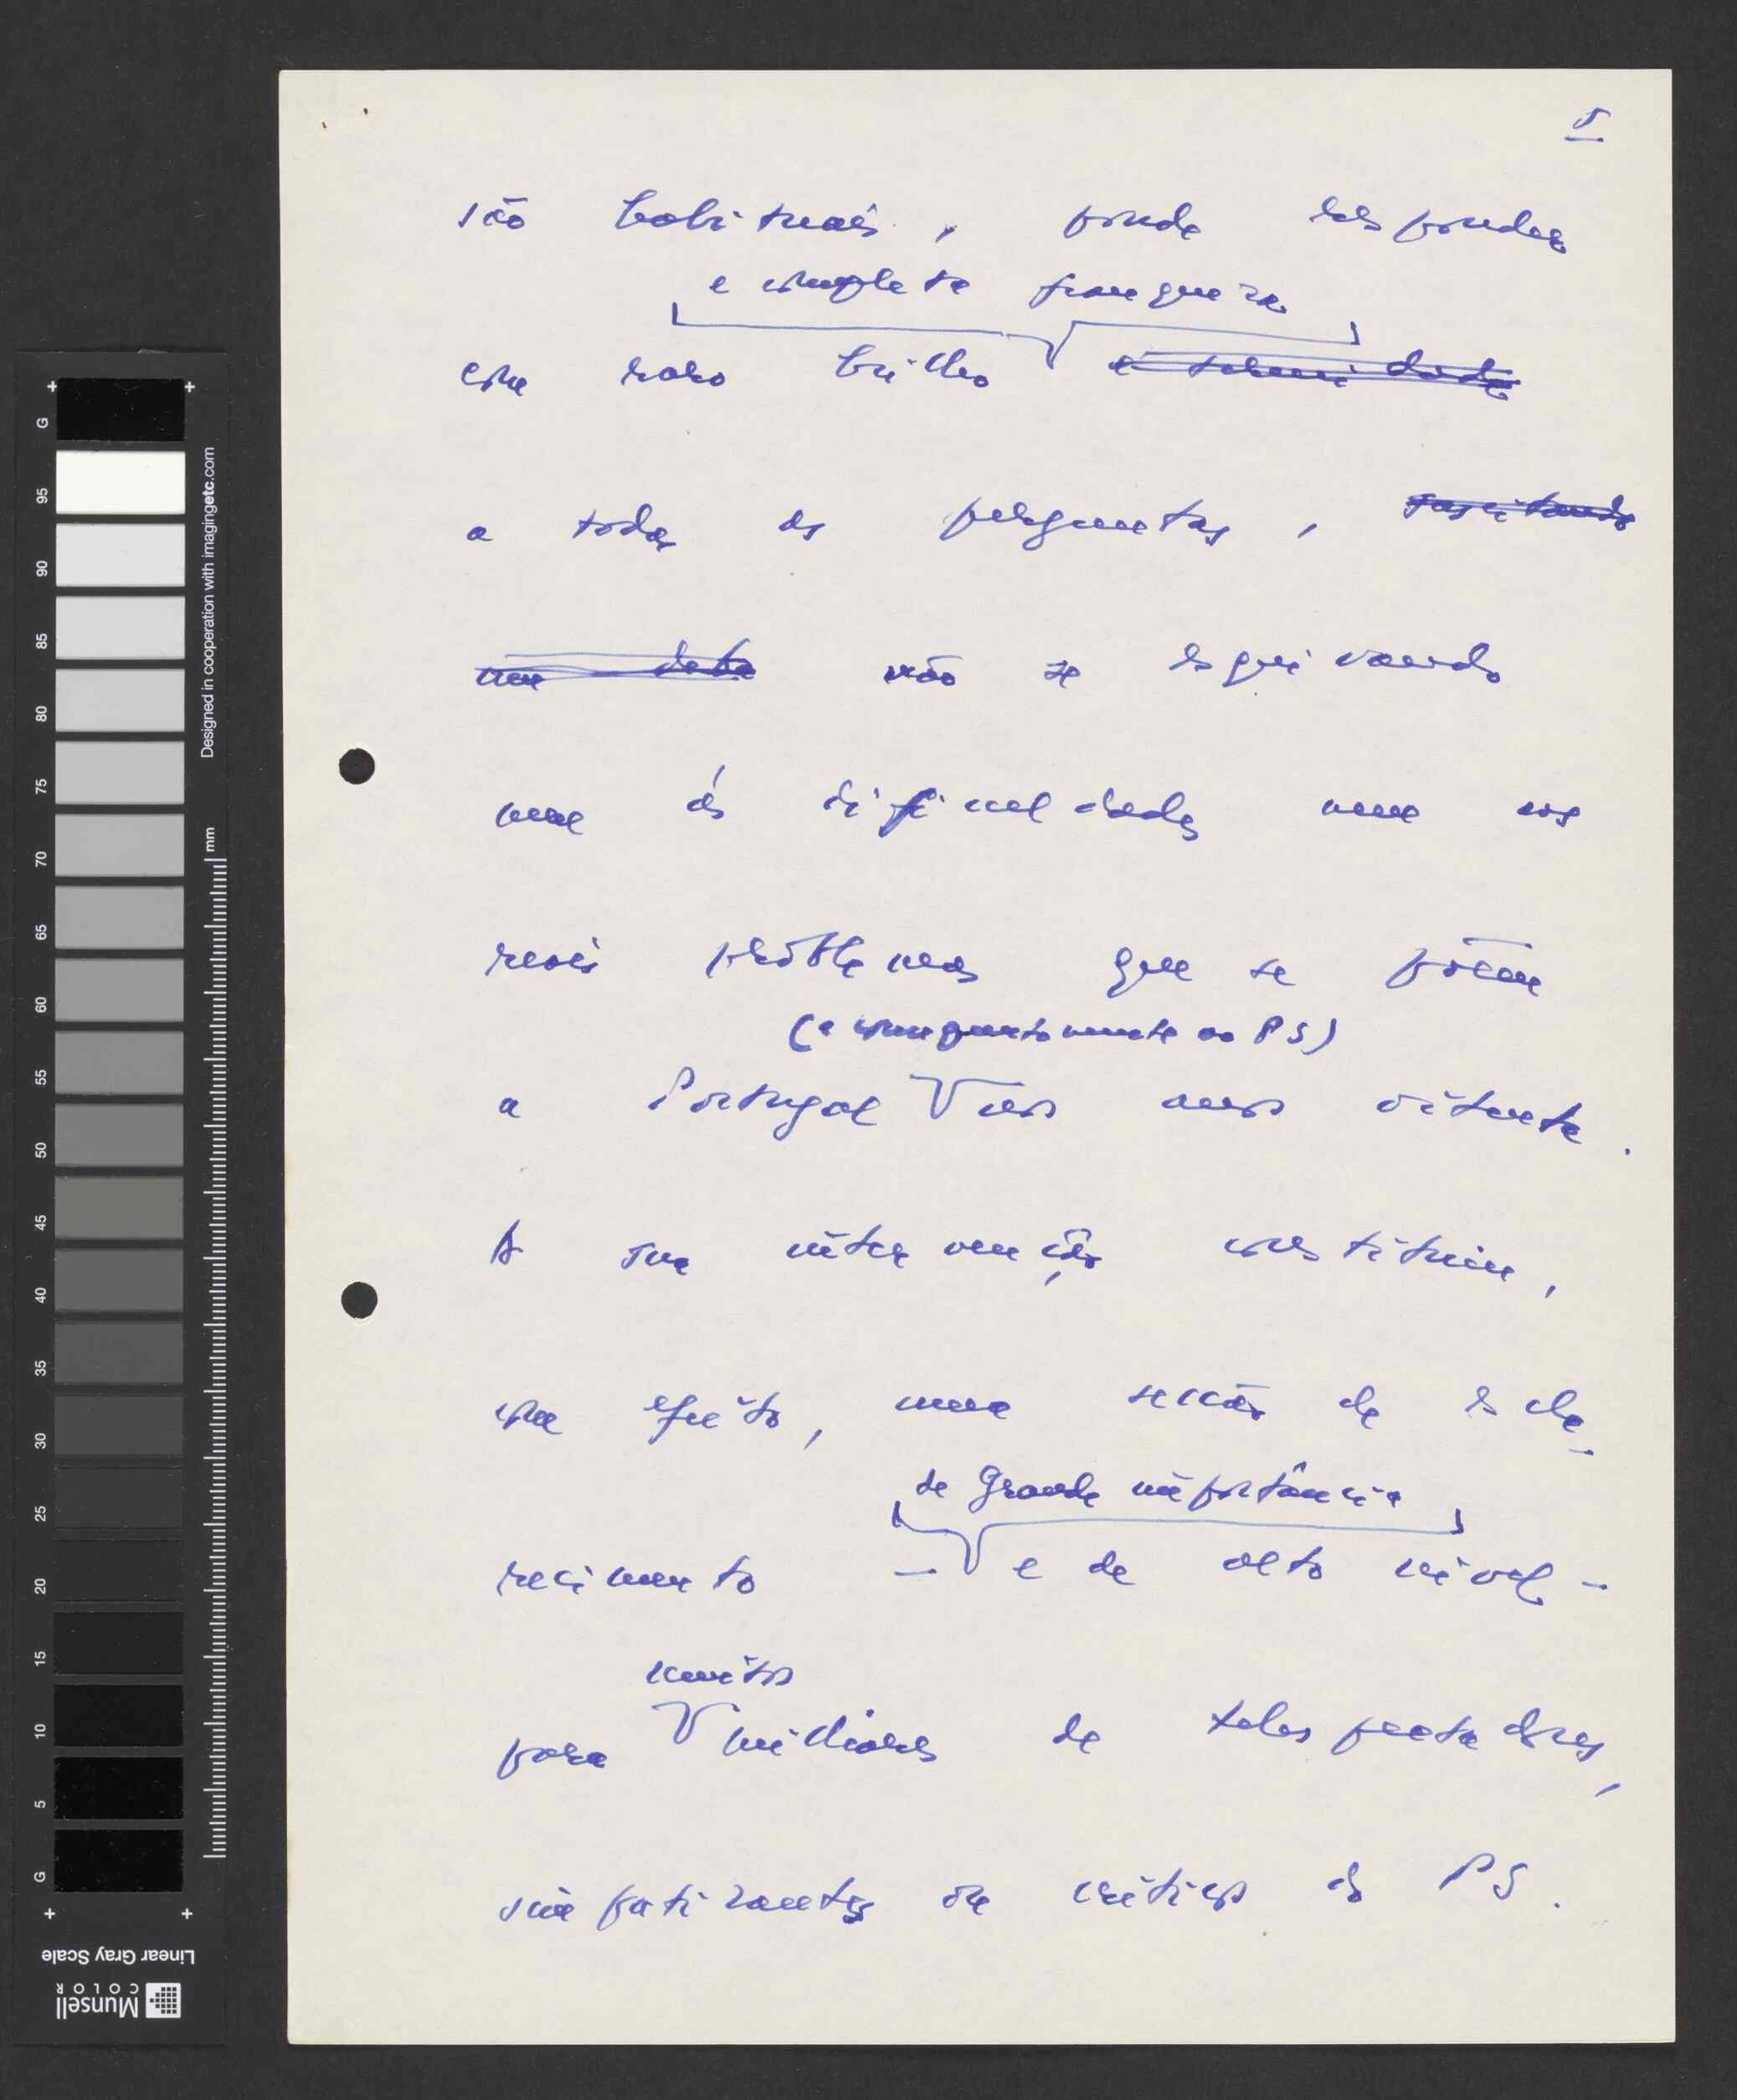 5
são habituais, pôude responder
e completa franqueza
com raro brilho e serenidade
a todas as perguntas, suscitando
um debate não se esquivando
nem às dificuldades nem aos
reais problemas que se põem
(e conjuntamente ao PS)
a Portugal nos anos oitenta.
A sua intervenção constituiu,
com efeito, uma sessão de escla-
de grande importância
recimento – e de alto nível –
muitos
para milhares de telespectadores,
simpatizantes ou críticos do PS.
G
95
90
85
80
75
70
65
60
55
50
45
40
35
30
25
20
15
10
5
G
mm
Designed in cooperation with imagingetc.com
Linear Gray Scale
Munsell
COLOR